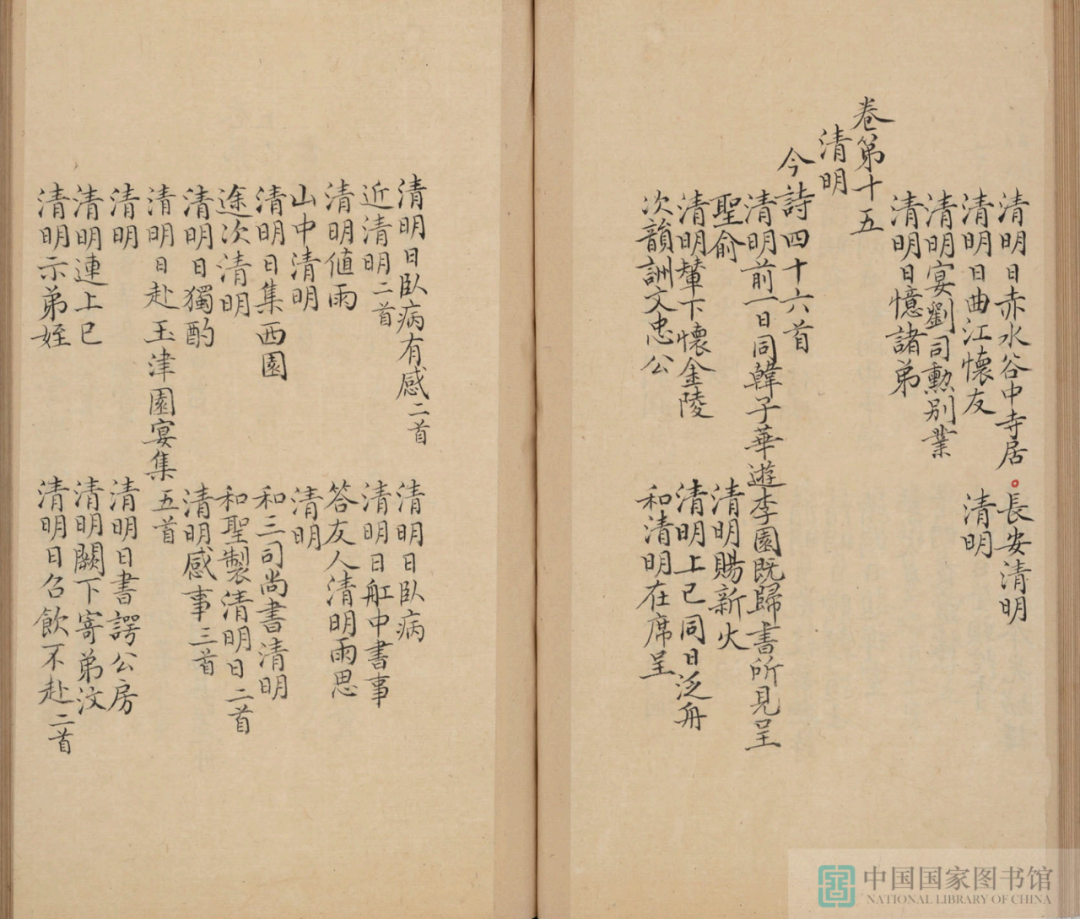 清明日赤水谷中寺居。長安清明
清明日曲江懷友 清明
清明宴劉司勲别業
清明日憶諸弟
卷第十五
清明
今詩四十六首
清明前一日同韓子華遊李園既歸書所見呈
聖俞 清明賜新火
清明輦下懷金陵 清明上巳同日泛舟
次韻詶文忠公 和清明在席呈
清明日臥病有感二首 清明日臥病
近清明二首 清明日舡中書事
清明值雨 答友人清明雨思
山中清明 清明
清明日集西園 和三司尚書清明
途次清明 和聖製清明日二首
清明日獨酌 清明感事三首
清明日赴玉津園宴集五首
清明 清明日書諤公房
清明連上巳 清明闕下寄弟汶
清明示弟姪 清明日召飲不赴二首
中国国家图书馆
NATIONAL LIBRARY OF CHINA